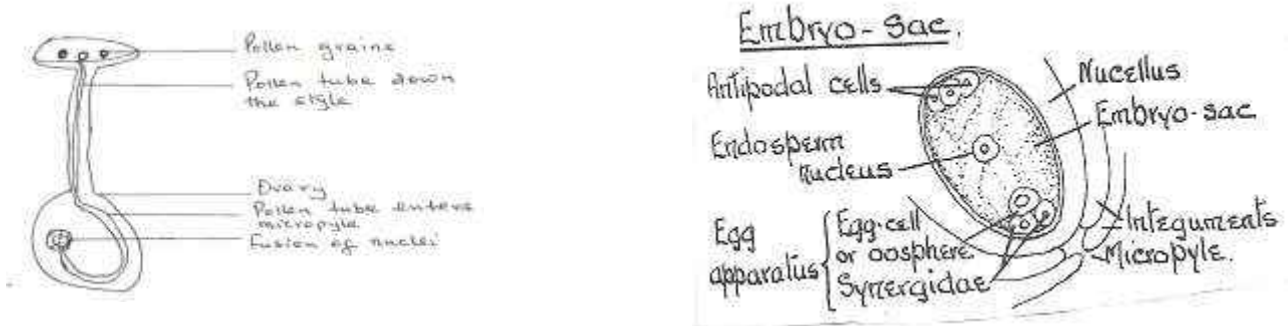 Pollen grains
Pollen tube down
the style
Ovary
Pollen tube enters
micropyle
Fusion of nuclei
Embryo-Sac.
Antipodal cells
Nucellus
Embryo-sac
Endosperm
nucleus
Egg
apparatus
Egg-cell
or oosphere.
Synergidae
Integuments
Micropyle.